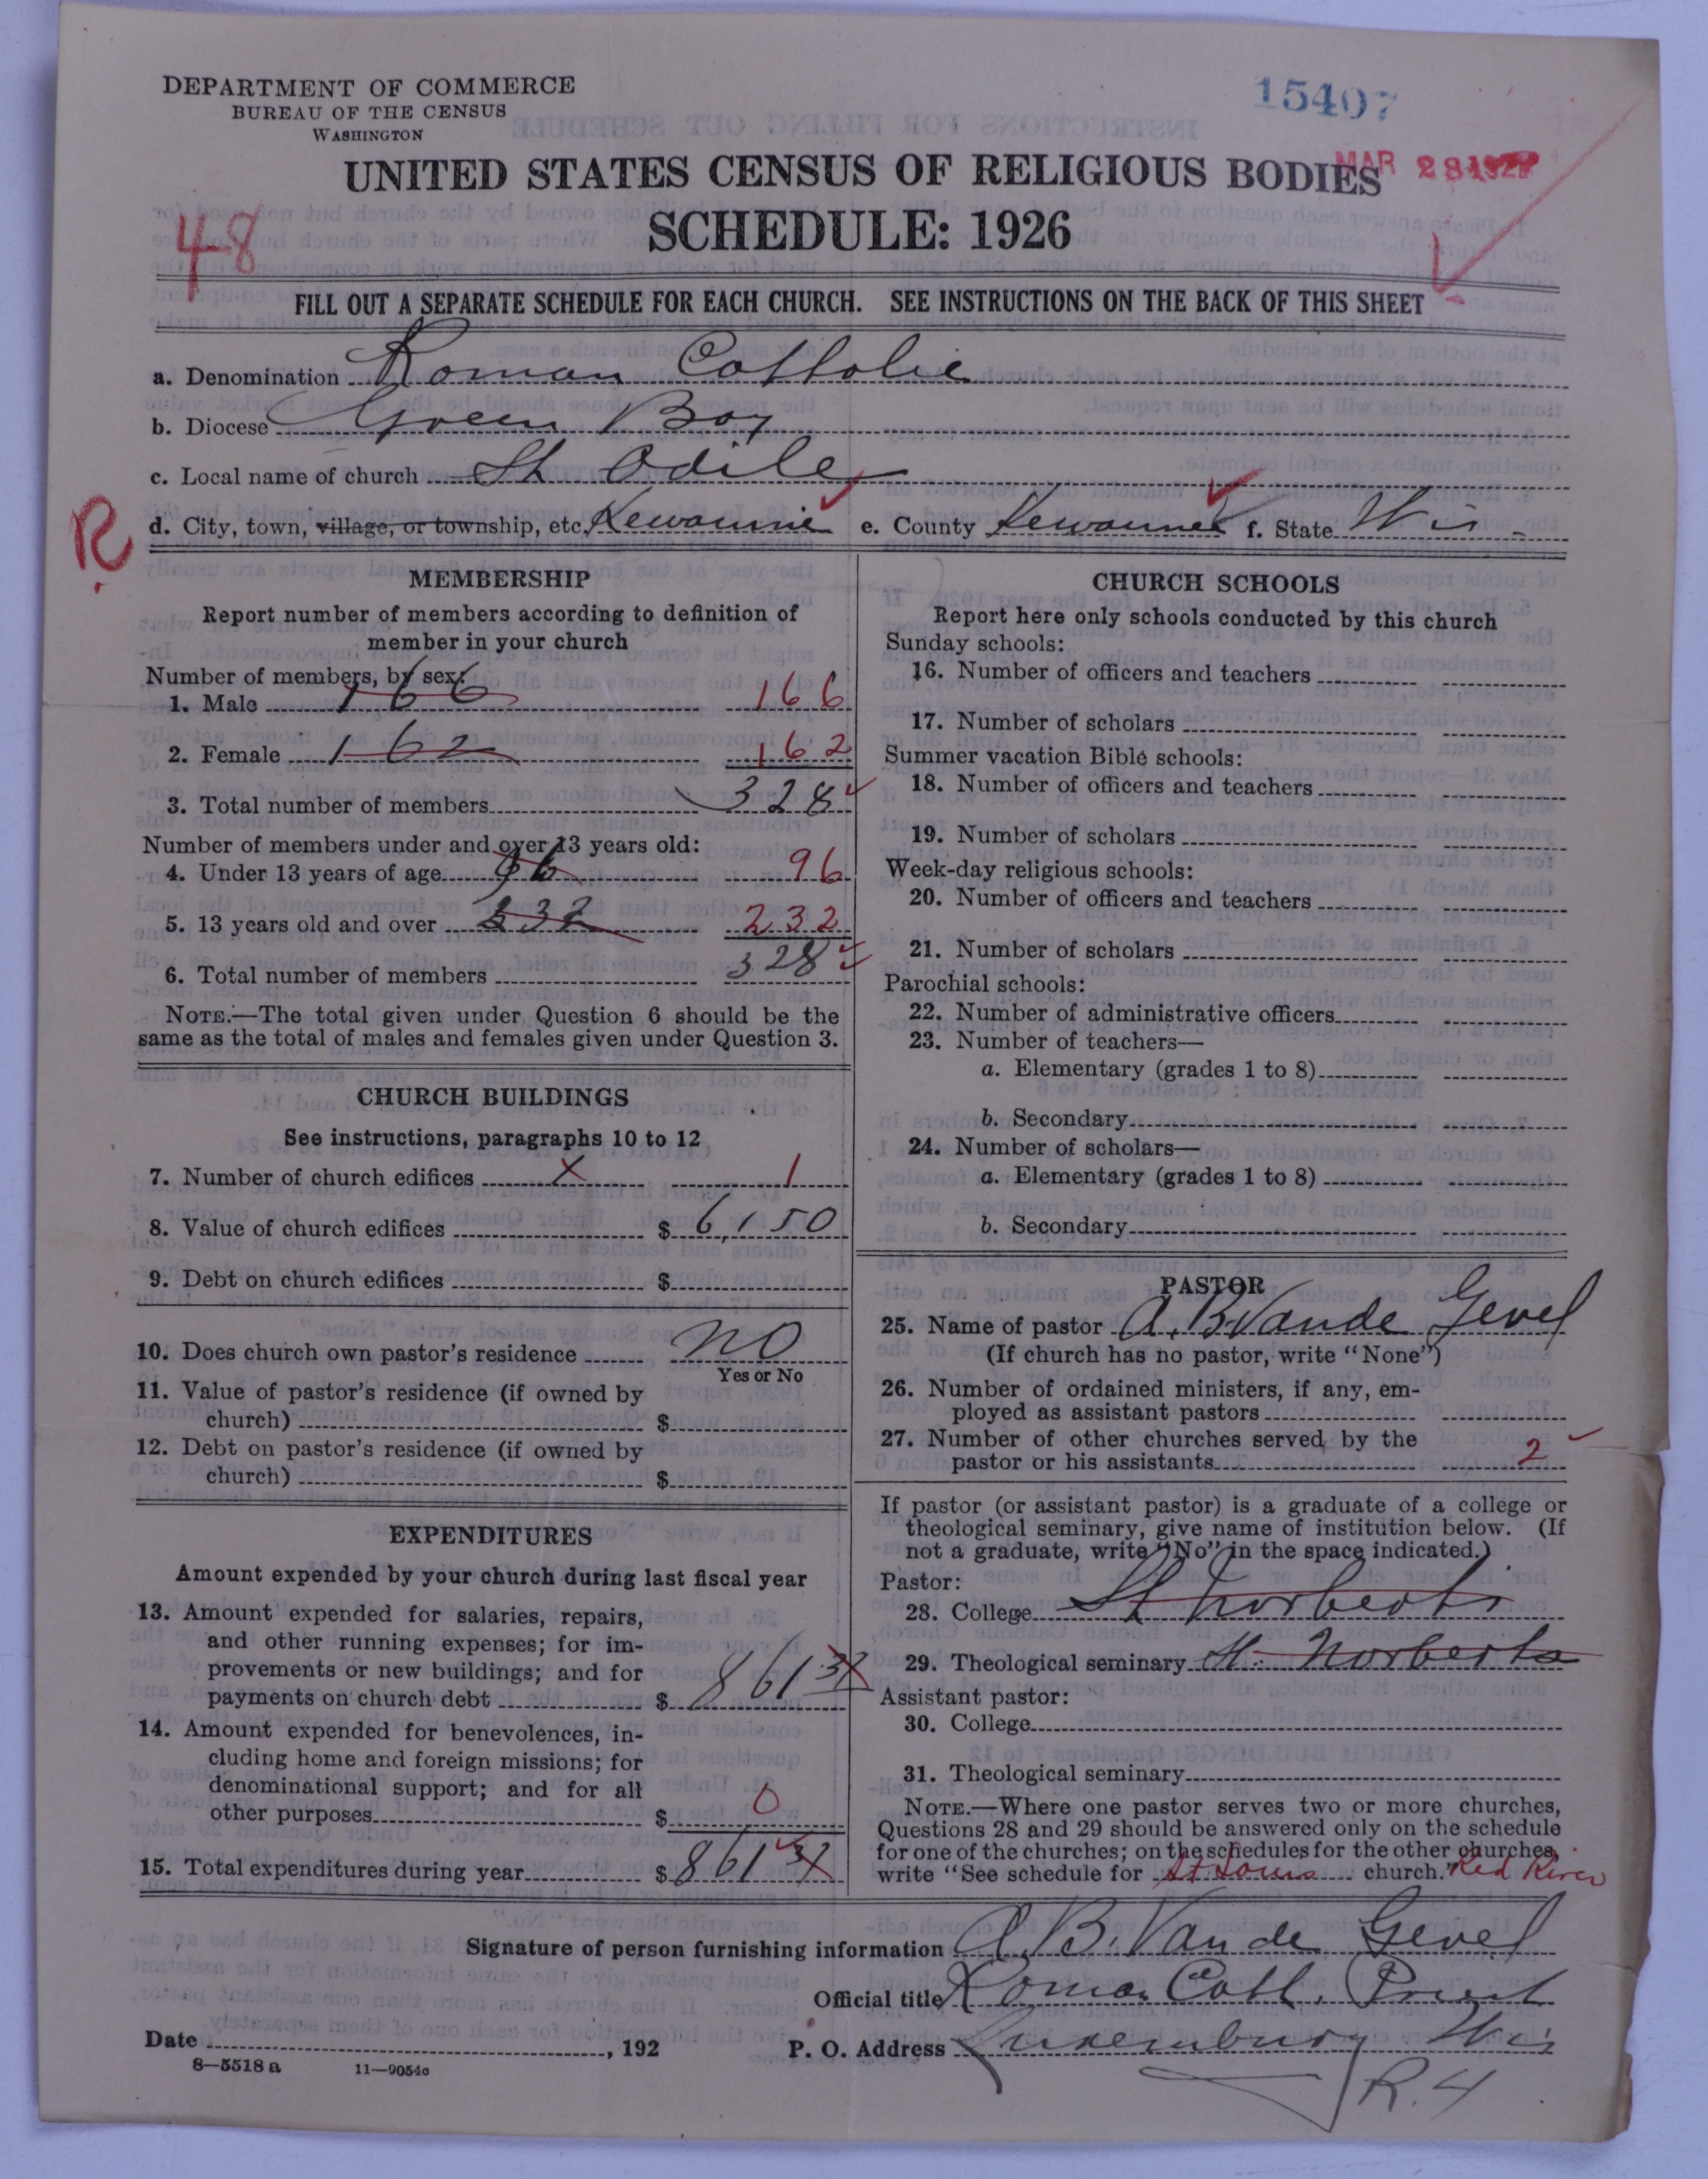 DEPARTMENT OF COMMERCE
BUREAU OF THE CENSUS
WASHINGTON
15407
UNITED STATES CENSUS OF RELIGIOUS BODIES
MAR 28 1927
SCHEDULE: 1926
48
FILL OUT A SEPARATE SCHEDULE FOR EACH CHURCH. SEE INSTRUCTIONS ON THE BACK OF THIS SHEET
a. Denomination Roman Catholic
b. Diocese Green Bay
c. Local name of church St Odile
R
d. City, town, village, or township, etc. Kewaunie e. County Kewaunee f. State Wis
MEMBERSHIP
Report number of members according to definition of
member in your church
Number of members, by sex:
1. Male 166 166
2. Female 162 162
3. Total number of members 328
Number of members under and over 13 years old:
4. Under 13 years of age 96 96
5. 13 years old and over 232 232
6. Total number of members 328
NOTE.—The total given under Question 6 should be the
same as the total of males and females given under Question 3.
CHURCH BUILDINGS
See instructions, paragraphs 10 to 12
7. Number of church edifices x 1
8. Value of church edifices $ 6,150
9. Debt on church edifices $
10. Does church own pastor's residence no
Yes or No
11. Value of pastor's residence (if owned by
church) $
12. Debt on pastor's residence (if owned by
church) $
EXPENDITURES
Amount expended by your church during last fiscal year
13. Amount expended for salaries, repairs,
and other running expenses; for im-
provements or new buildings; and for
payments on church debt $ 861 37
14. Amount expended for benevolences, in-
cluding home and foreign missions; for
denominational support; and for all
other purposes $ 0
15. Total expenditures during year $ 861 37
CHURCH SCHOOLS
Report here only schools conducted by this church
Sunday schools:
16. Number of officers and teachers
17. Number of scholars
Summer vacation Bible schools:
18. Number of officers and teachers
19. Number of scholars
Week-day religious schools:
20. Number of officers and teachers
21. Number of scholars
Parochial schools:
22. Number of administrative officers
23. Number of teachers—
a. Elementary (grades 1 to 8)
b. Secondary
24. Number of scholars—
a. Elementary (grades 1 to 8)
b. Secondary
PASTOR
25. Name of pastor A. B. Vande Gevel
(If church has no pastor, write "None")
26. Number of ordained ministers, if any, em-
ployed as assistant pastors
27. Number of other churches served by the
pastor or his assistants 2
If pastor (or assistant pastor) is a graduate of a college or
theological seminary, give name of institution below. (If
not a graduate, write "No" in the space indicated.)
Pastor:
28. College St Norberts
29. Theological seminary St. Norberts
Assistant pastor:
30. College
31. Theological seminary
NOTE.—Where one pastor serves two or more churches,
Questions 28 and 29 should be answered only on the schedule
for one of the churches; on the schedules for the other churches,
write "See schedule for St Louis church." Red River
Signature of person furnishing information A. B. Van de Gevel
Official title Roman Cath. Priest
Date , 192 P. O. Address Luxemburg Wis
8—5518 a 11—9054c
R. 4